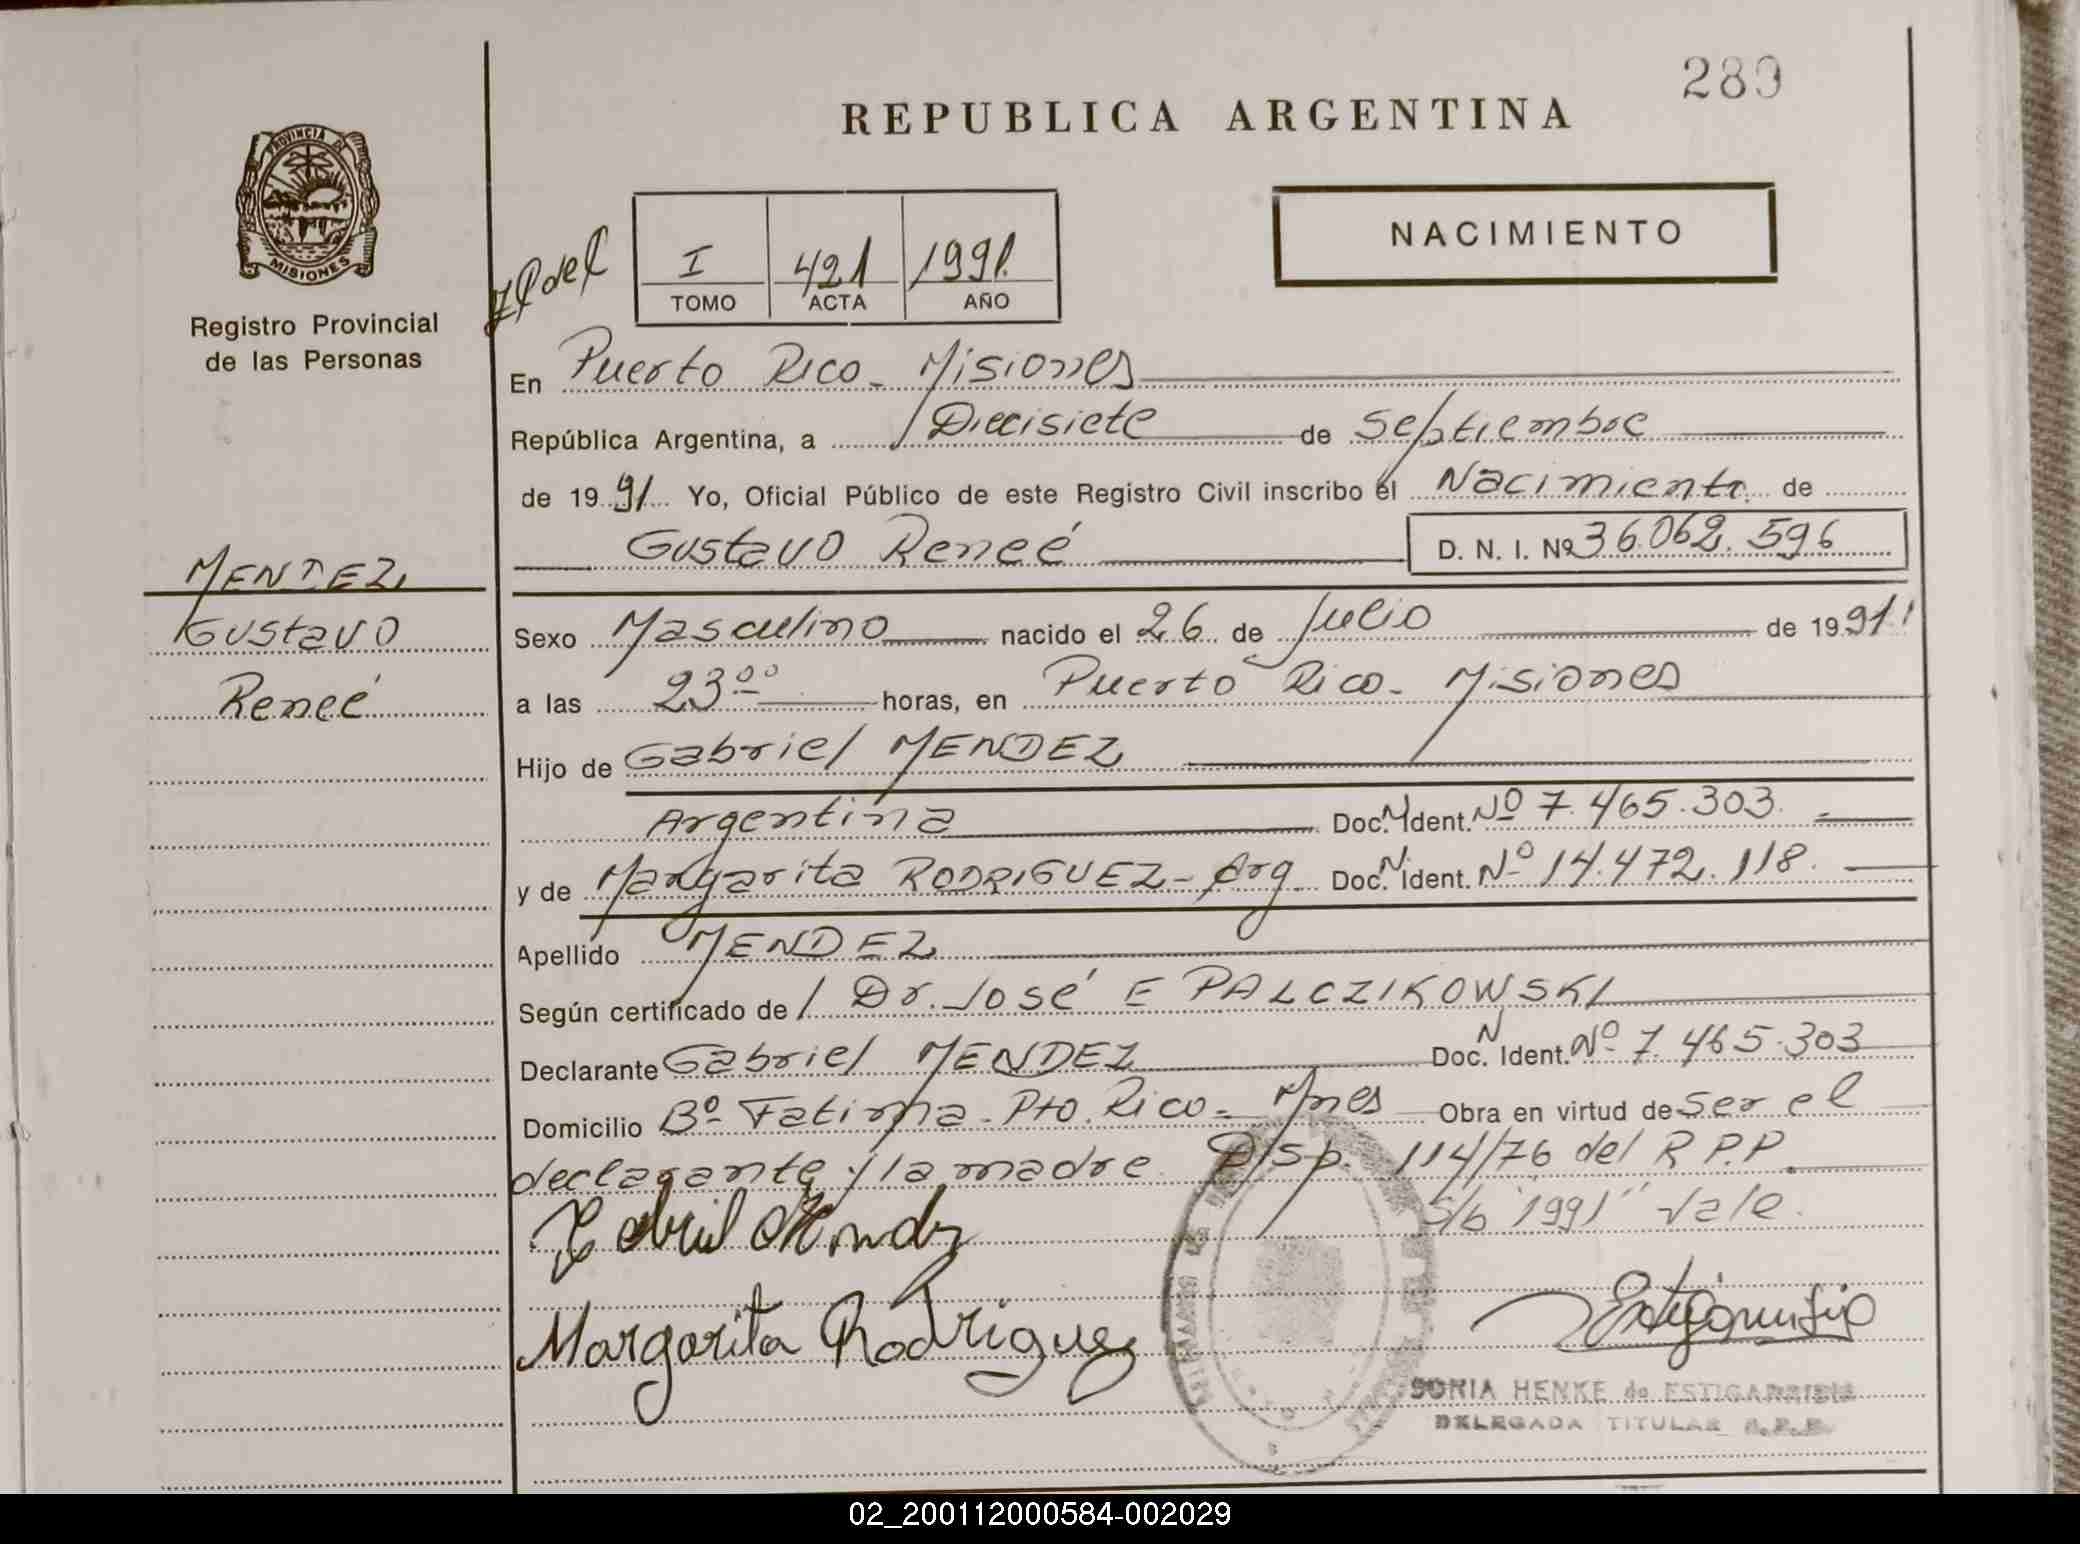 289
REPUBLICA ARGENTINA
PROVINCIA DE
MISIONES
Registro Provincial
de las Personas
I 421 1991.
TOMO ACTA AÑO
NACIMIENTO
En Puerto Rico - Misiones
República Argentina, a Diecisiete de Septiembre
de 1991 Yo, Oficial Público de este Registro Civil inscribo el Nacimiento de
Gustavo Reneé D. N. I. Nº 36.062.596
MENDEZ
Gustavo
Reneé
Sexo Masculino nacido el 26 de Julio de 1991
a las 23 ºº horas, en Puerto Rico - Misiones
Hijo de Gabriel MENDEZ
Argentina Doc. N Ident. Nº 7.465.303.
y de Margarita RODRIGUEZ - Arg Doc. N Ident. Nº 14.472.118.
Apellido MENDEZ
Según certificado de Dr. José E PALCZIKOWSKI
Declarante Gabriel MENDEZ Doc. N Ident. Nº 7.465.303
Domicilio Bº Fatima - Pto. Rico - Mnes Obra en virtud de ser el
declarante y la madre Disp. 114/76 del R.P.P.
S/b "1991" Vale.
Gabriel Mendez
Margarita Rodriguez
SONIA HENKE de ESTIGARRIBIA
DELEGADA TITULAR R.P.P.
02_200112000584-002029